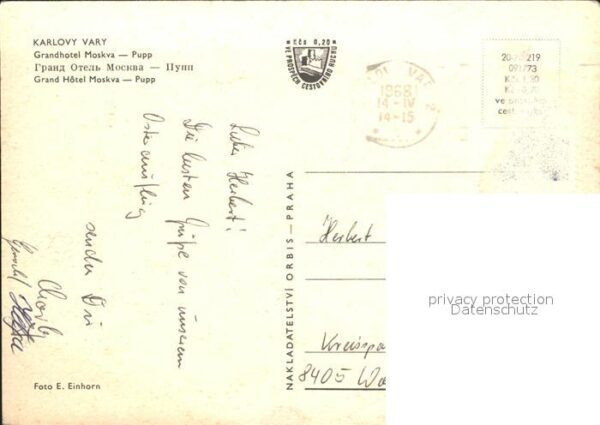 KARLOVY VARY
Grandhotel Moskva — Pupp
Гранд Отель Москва — Пупп
Grand Hôtel Moskva — Pupp
Kčs 0,20
VE PROSPĚCH CESTOVNÍHO RUCHU
VARY
1968
14-IV
14-15
Lieber Herbert!
Die besten Grüße von unserem
Osterausflug
senden Dir
NAKLADATELSTVÍ ORBIS — PRAHA
Herbert
8405
privacy protection
Datenschutz
Foto E. Einhorn